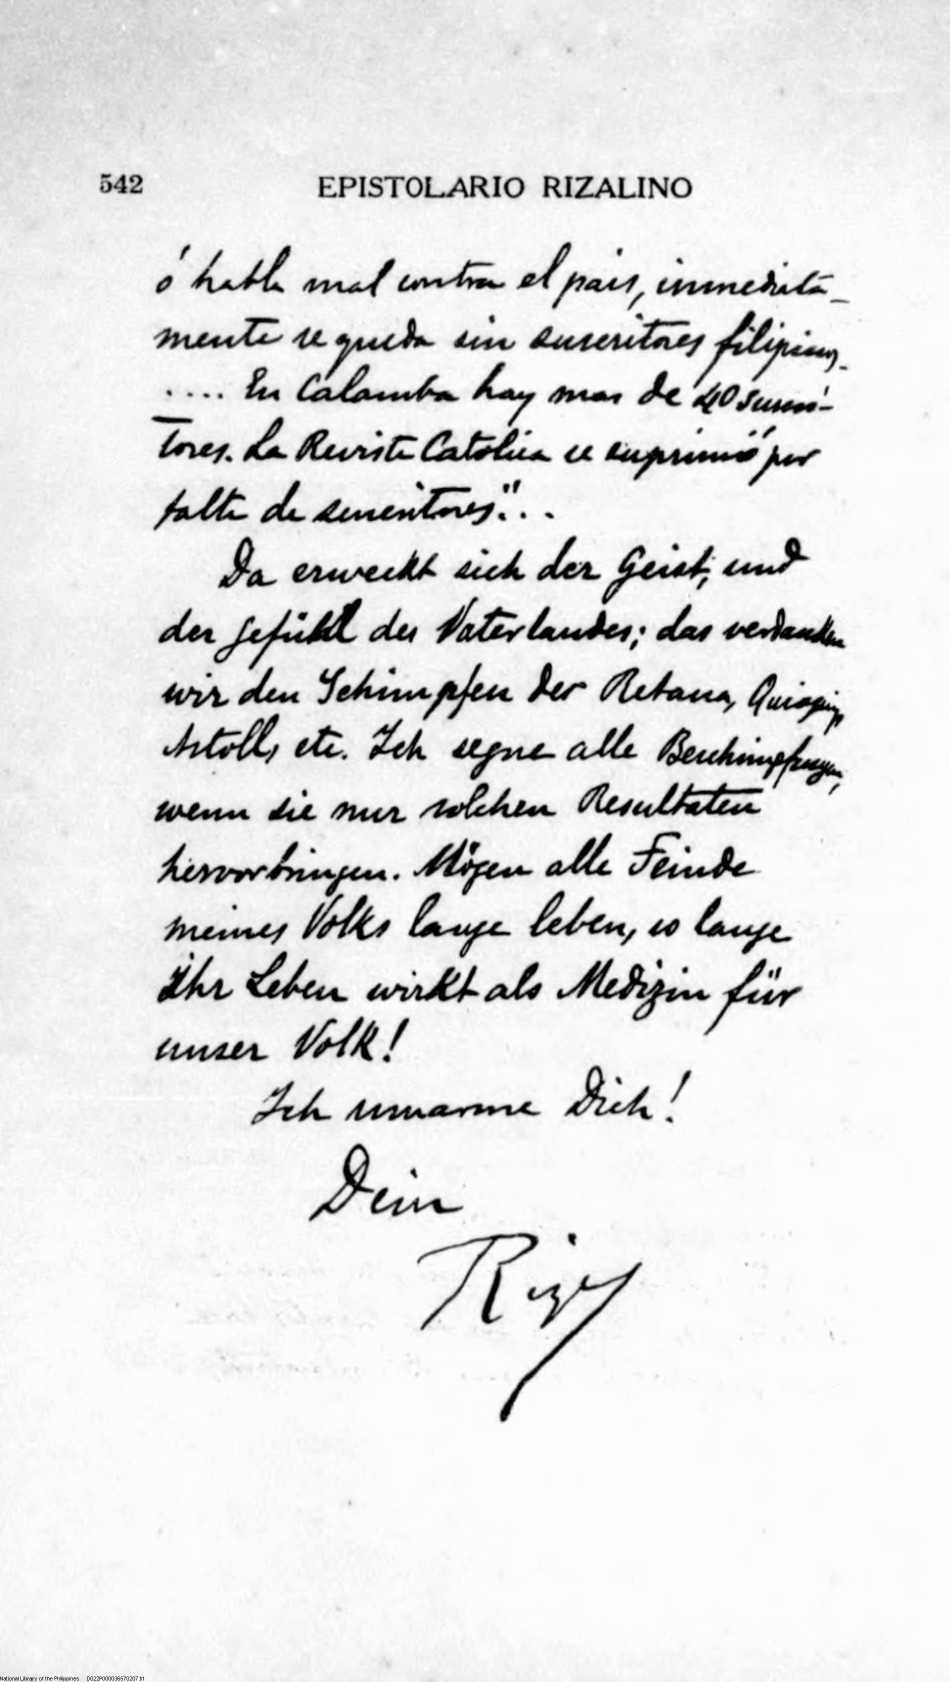 542 EPISTOLARIO RIZALINO
ó habla mal contra el pais, inmediata-
mente se queda sin suscritores filipinos.
.... En Calamba hay mas de 40 suscri-
tores. La Revista Católica se suprimió por
falta de suscritores"...
Da erweckt sich der Geist, und
der gefühl des Vaterlandes; das verdanken
wir den Schimpfen der Retana, Quioquiap
Astoll, etc. Ich segne alle Beschimpfungen,
wenn sie nur solchen Resultaten
hervorbringen. Mögen alle Feinde
meines Volks lange leben, so lange
Ihr Leben wirkt als Medizin für
unser Volk!
Ich umarme Dich!
Dein
Rizal
National Library of the Philippines